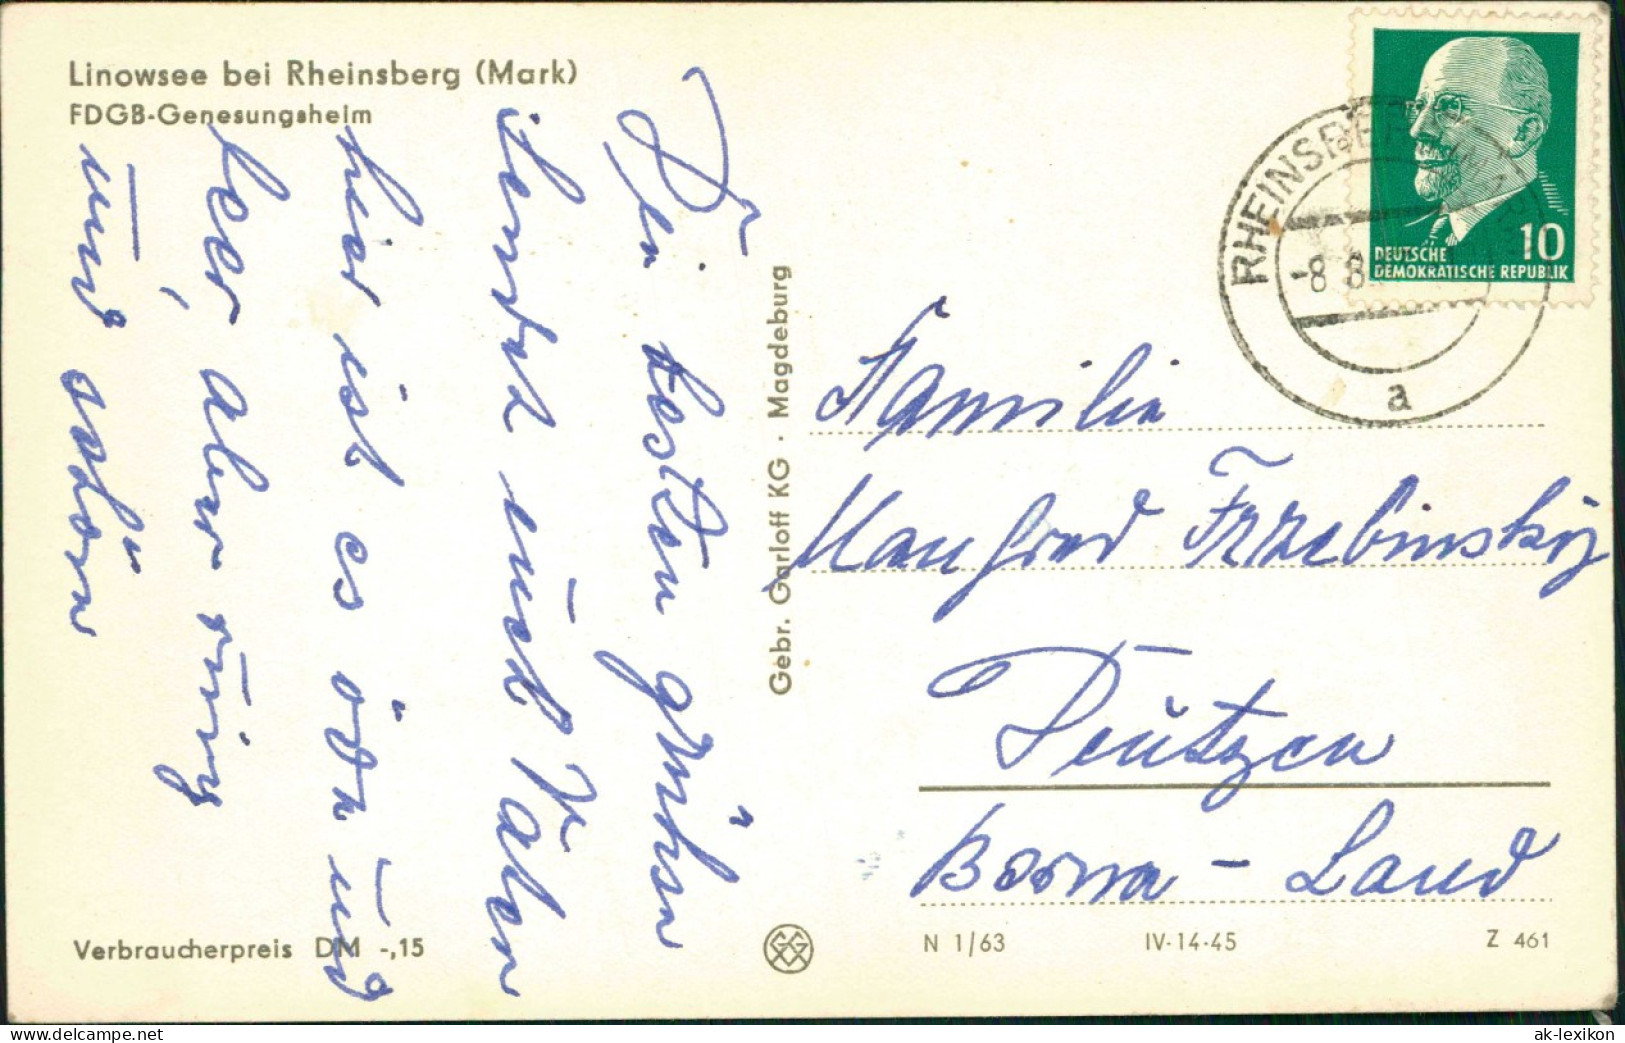 Linowsee bei Rheinsberg (Mark)
FDGB-Genesungsheim
Die besten Grüße
sendet euch Vater
hier ist es öde und
leer, aber ruhig
und schön
Gebr. Garloff KG · Magdeburg
RHEINSBERG
-8 8
a
10
DEUTSCHE
DEMOKRATISCHE REPUBLIK
Familie
Manfred
Deutzen
Borna - Land
Verbraucherpreis DM -,15
N 1/63 IV-14-45 Z 461
www.delcampe.net
ak-lexikon